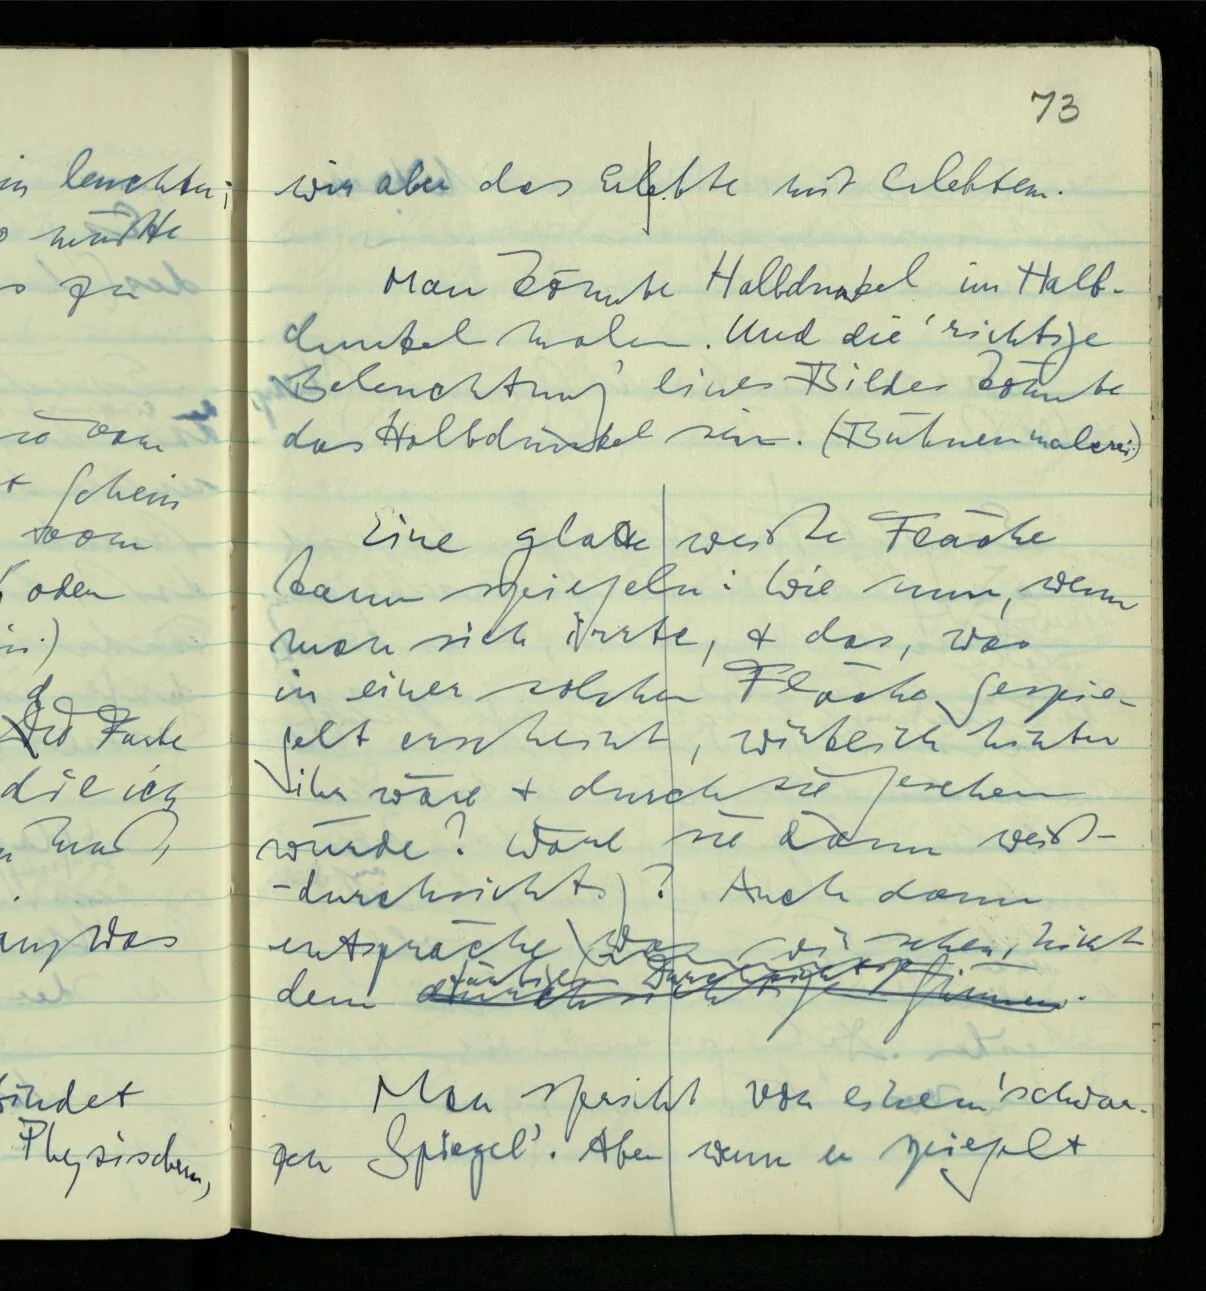 in leuchten;
müßte
s zu
so vom
t Schein
vom
oder
Die Farbe
die ich
muß,
was
findet
Physischen,
73
wir aber das Erlebte mit Erlebtem.
Man könnte Halbdunkel im Halb-
dunkel malen. Und die 'richtige
Beleuchtung' eines Bildes könnte
das Halbdunkel sein. (Bühnenmalerei.)
Eine glatte weiße Fläche
kann spiegeln: Wie nun, wenn
man sich irrte, + das, was
in einer solchen Fläche gespie-
gelt erscheint, wirklich hinter
ihr wäre + durch sie gesehen
würde? Wäre sie dann weiß-
-durchsichtig? Auch dann
entspräche was wir sehen, nicht
färbigen Durchsichtigen
dem durchsichtig .
Man spricht von einem 'schwar-
zen Spiegel'. Aber wenn er spiegelt